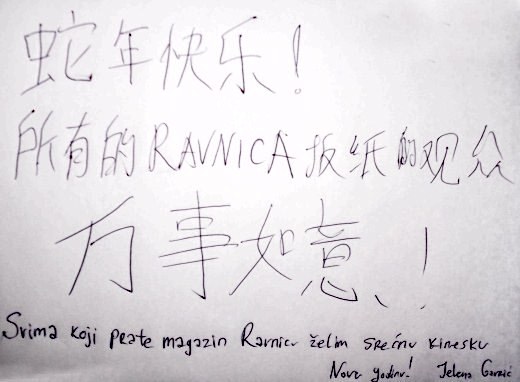 蛇年快乐!
所有的RAVNICA扳纸的观众
万事如意!
Svima koji prate magazin Ravnicu želim srećnu kinesku
Novu godinu! Jelena